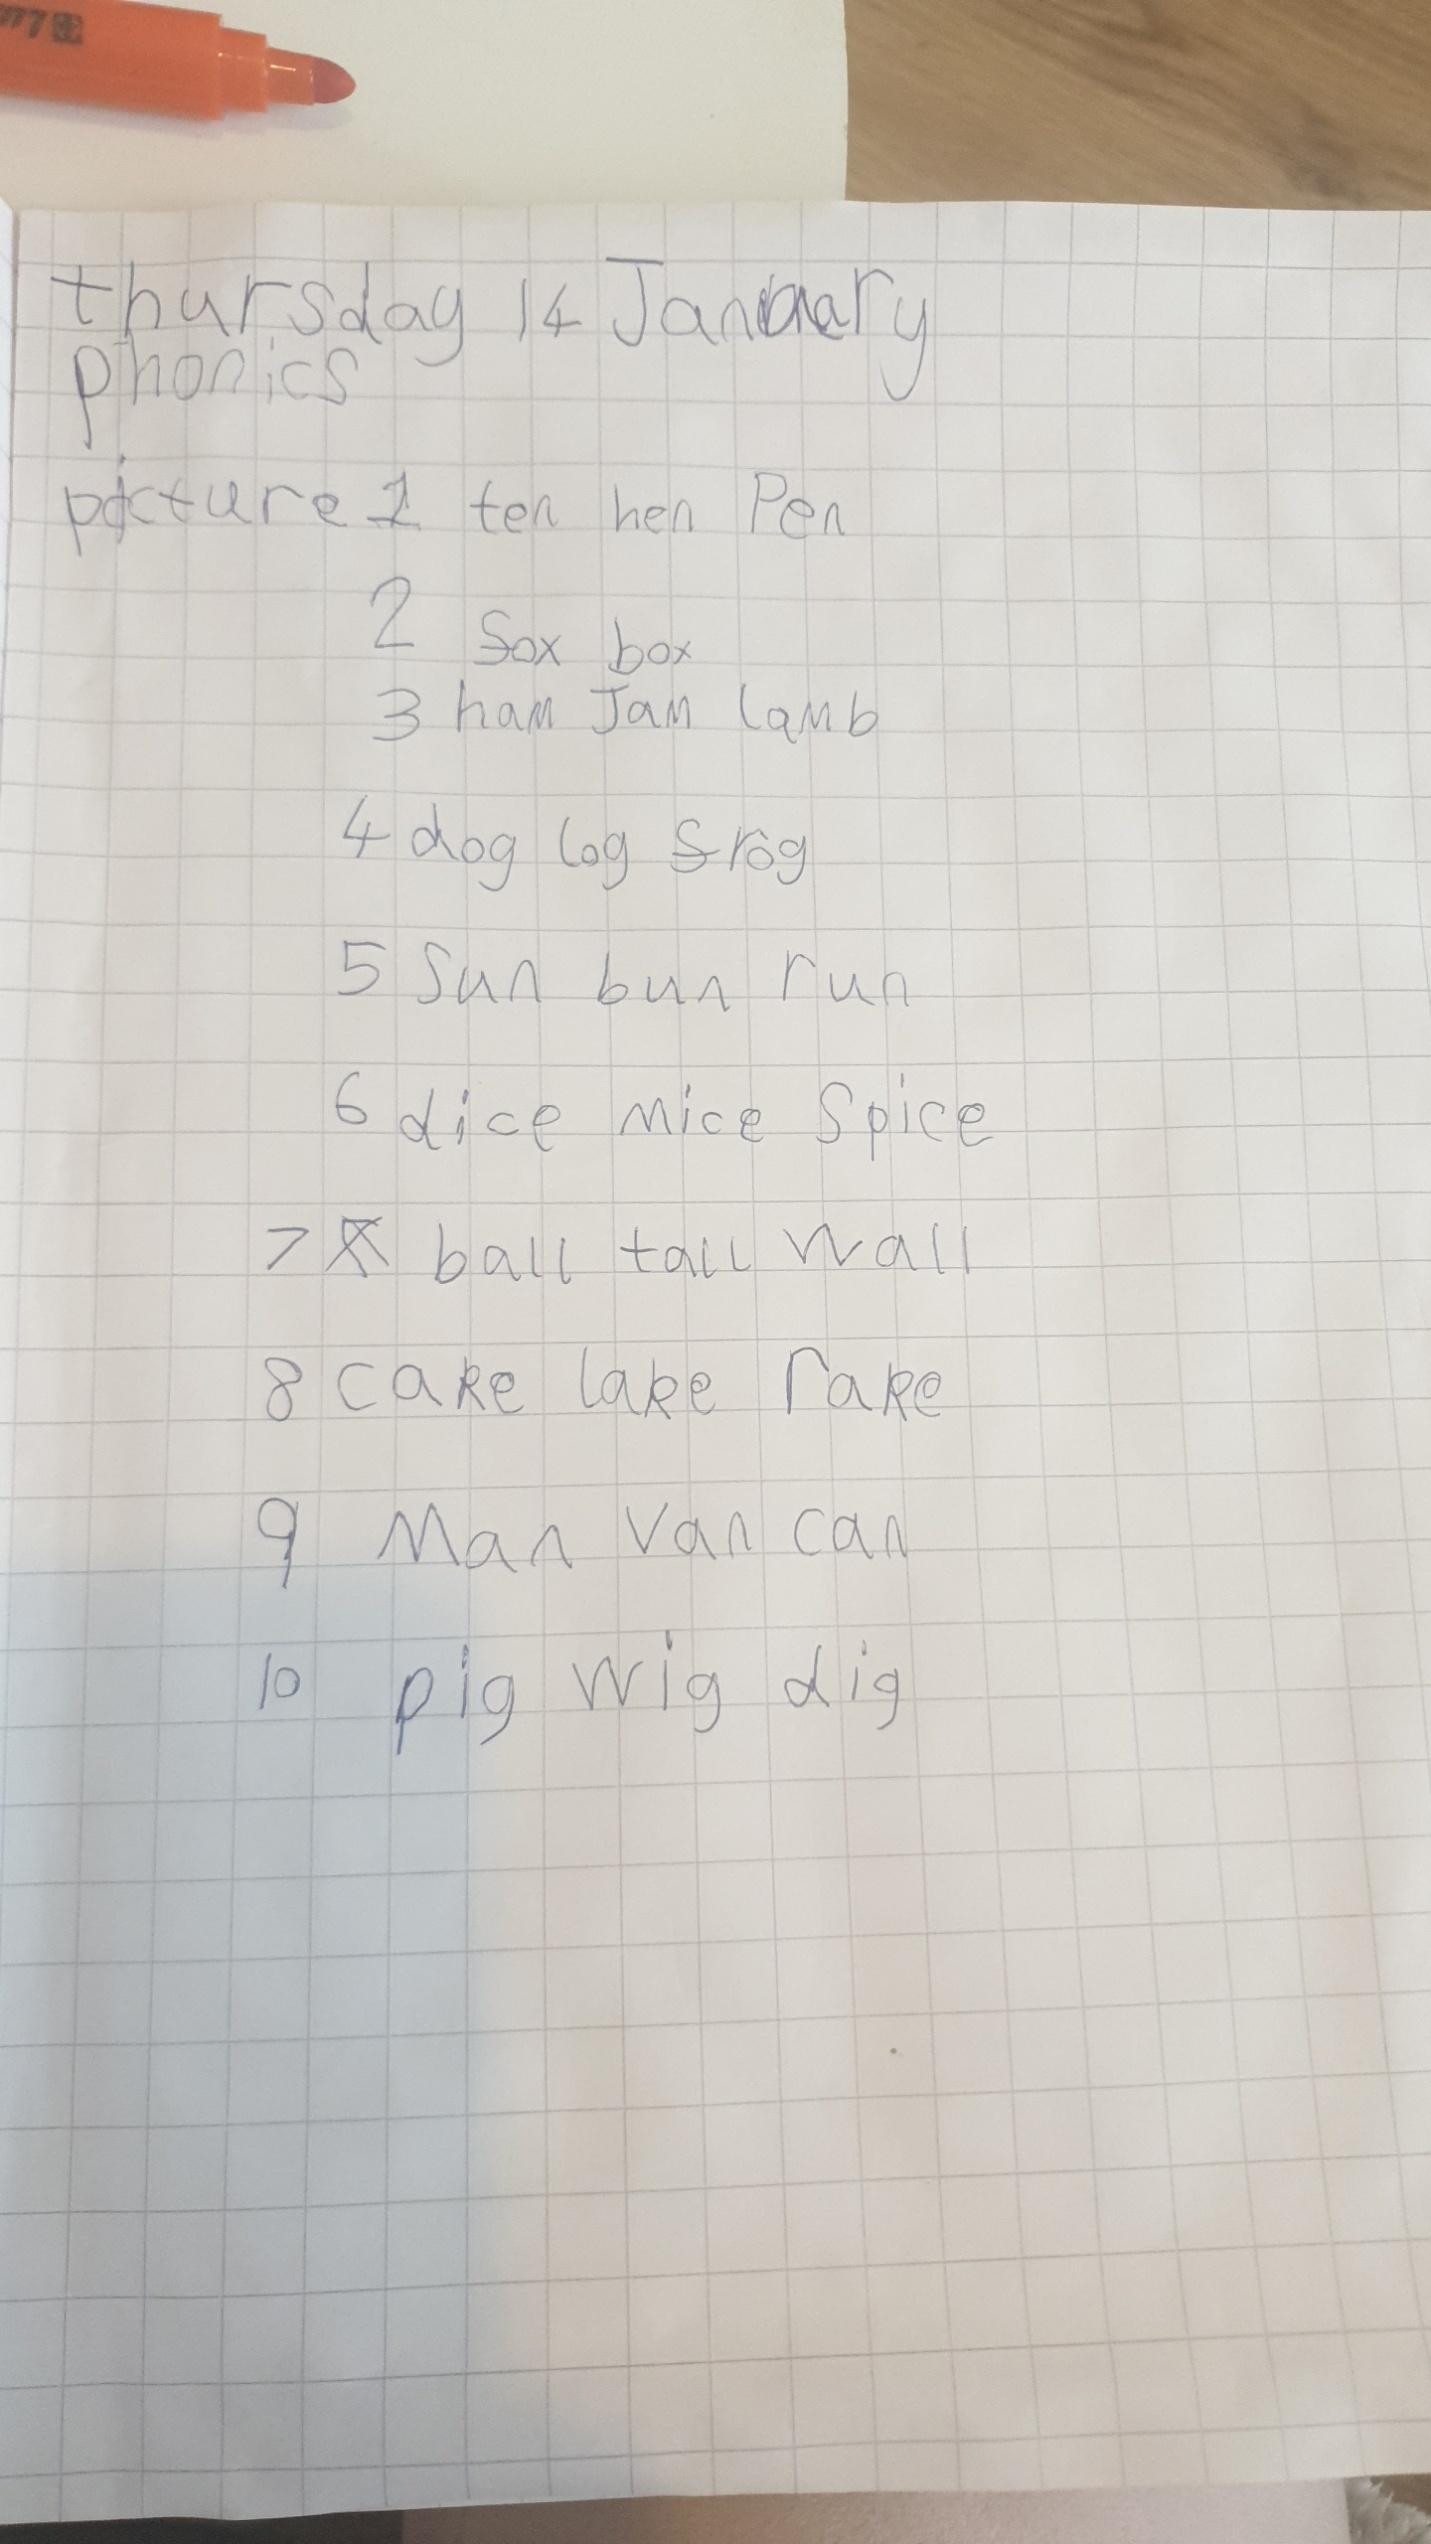 thursday 14 January
phonics
picture 1 ten hen Pen
2 Sox box
3 ham Jam lamb
4 dog log frog
5 Sun bun run
6 dice mice Spice
7 ball tall wall
8 cake lake rake
9 Man Van can
10 pig wig dig